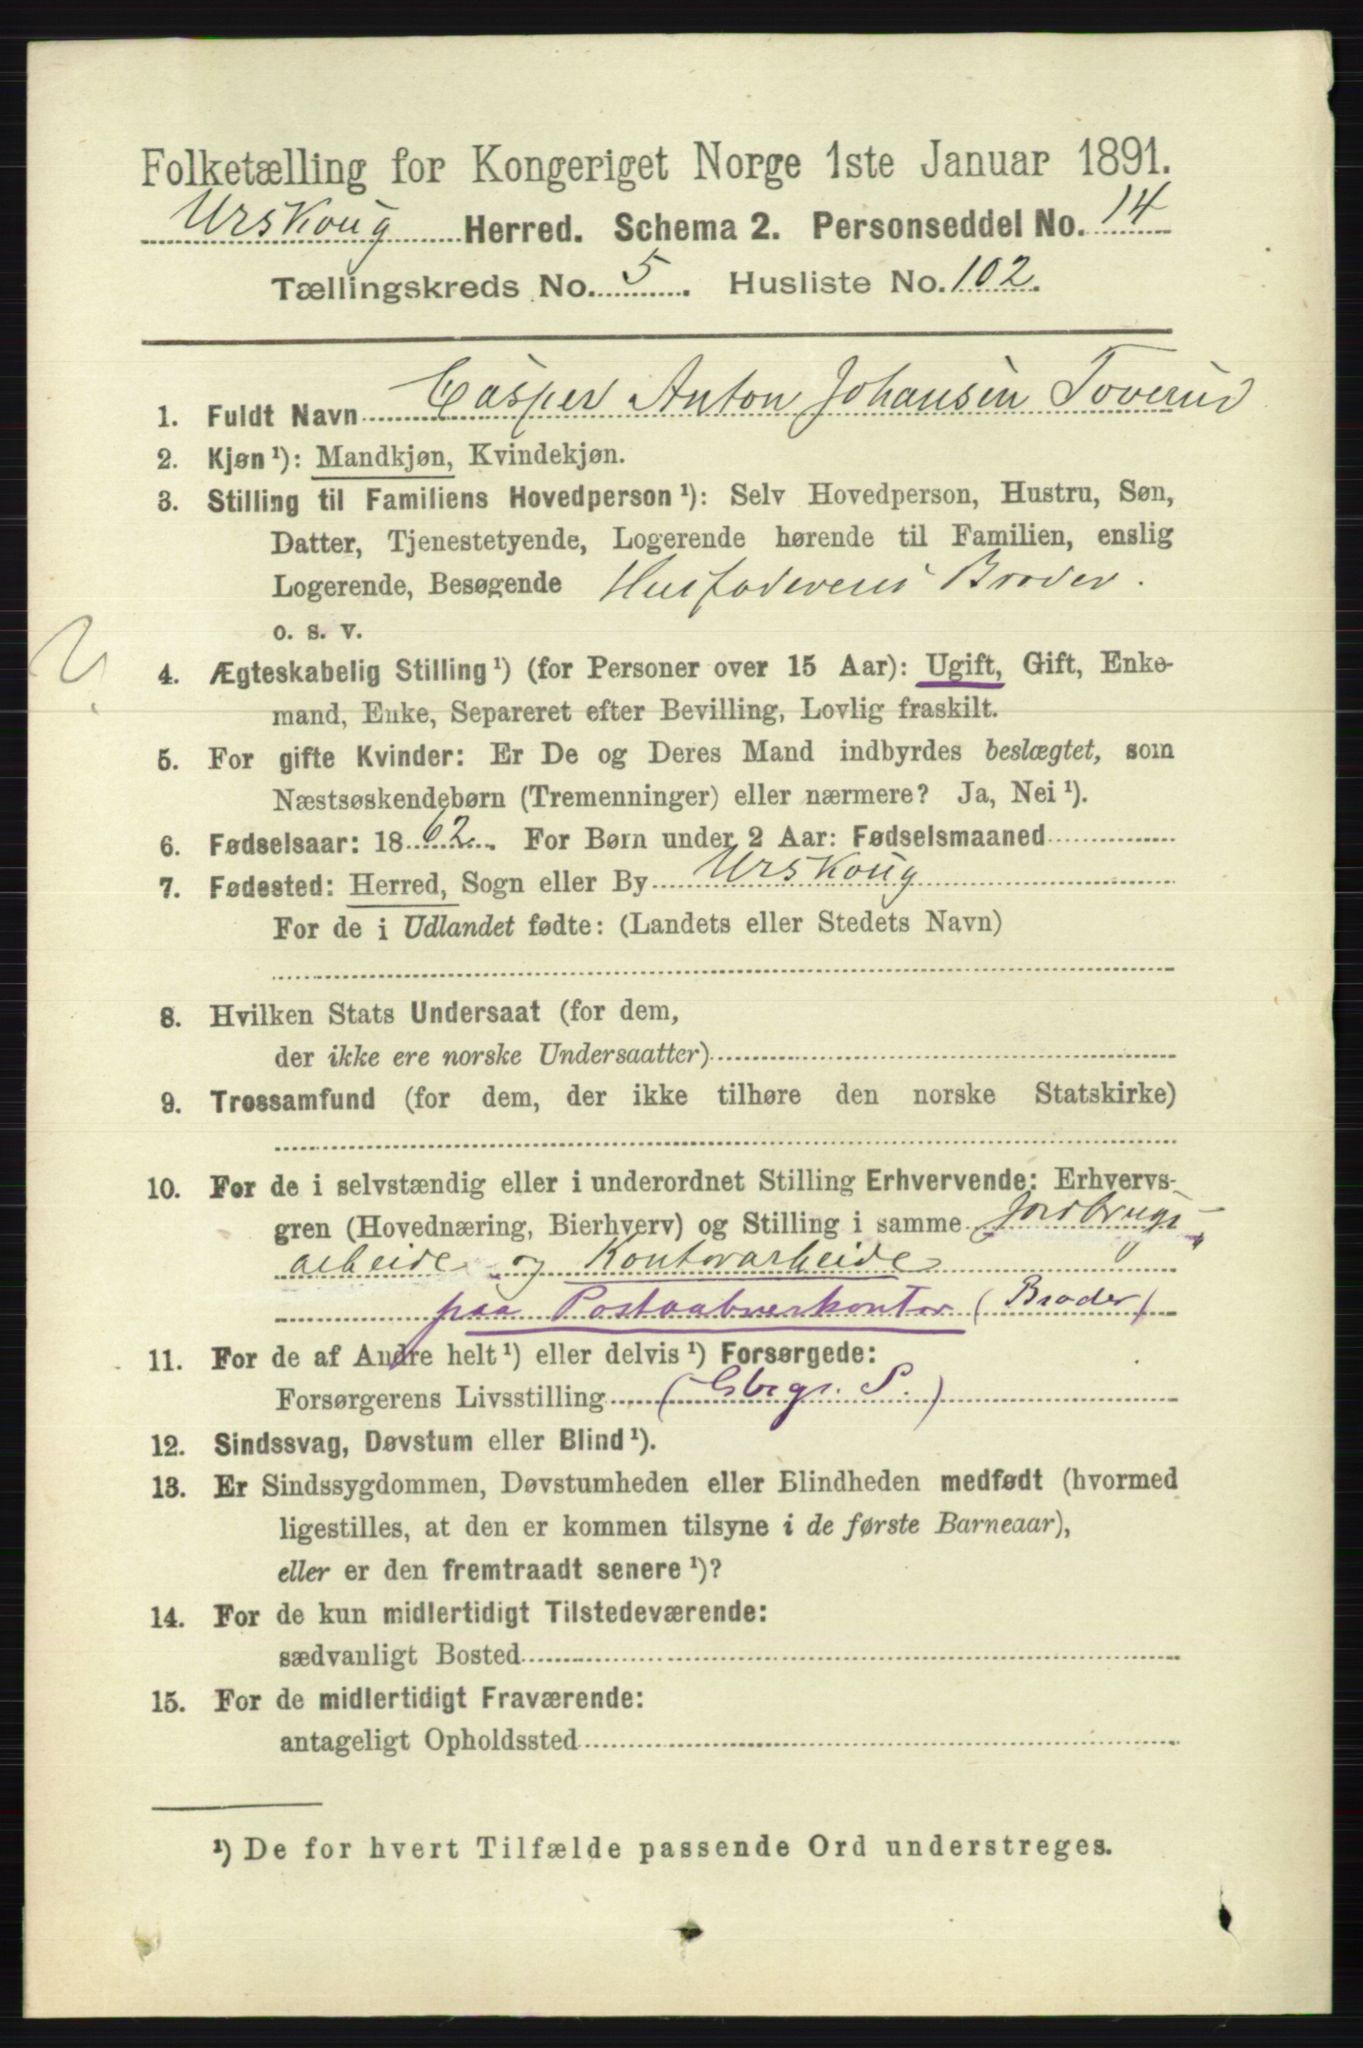 Folketælling for Kongeriget Norge 1ste Januar 1891.
Urskoug Herred. Schema 2. Personseddel No. 14
Tællingskreds No. 5. Husliste No. 102.
1. Fuldt Navn Casper Anton Johansen Toverud
2. Kjøn ¹): Mandkjøn, Kvindekjøn.
3. Stilling til Familiens Hovedperson ¹): Selv Hovedperson, Hustru, Søn,
Datter, Tjenestetyende, Logerende hørende til Familien, enslig
Logerende, Besøgende Husfaderens Broder.
o. s. v.
4. Ægteskabelig Stilling ¹) (for Personer over 15 Aar): Ugift, Gift, Enke-
mand, Enke, Separeret efter Bevilling, Lovlig fraskilt.
5. For gifte Kvinder: Er De og Deres Mand indbyrdes beslægtet, som
Næstsøskendebørn (Tremenninger) eller nærmere? Ja, Nei ¹).
6. Fødselsaar: 1862. For Børn under 2 Aar: Fødselsmaaned
7. Fødested: Herred, Sogn eller By Urskoug
For de i Udlandet fødte: (Landets eller Stedets Navn)
8. Hvilken Stats Undersaat (for dem,
der ikke ere norske Undersaatter)
9. Trossamfund (for dem, der ikke tilhøre den norske Statskirke)
10. For de i selvstændig eller i underordnet Stilling Erhvervende: Erhvervs-
gren (Hovednæring, Bierhverv) og Stilling i samme Jordbrugs-
arbeide og Kontorarbeide
paa Postaabnerkontor (Broder)
11. For de af Andre helt ¹) eller delvis ¹) Forsørgede:
Forsørgerens Livsstilling (Gbrgr. S.)
12. Sindssvag, Døvstum eller Blind ¹).
13. Er Sindssygdommen, Døvstumheden eller Blindheden medfødt (hvormed
ligestilles, at den er kommen tilsyne i de første Barneaar),
eller er den fremtraadt senere ¹)?
14. For de kun midlertidigt Tilstedeværende:
sædvanligt Bosted
15. For de midlertidigt Fraværende:
antageligt Opholdssted
¹) De for hvert Tilfælde passende Ord understreges.